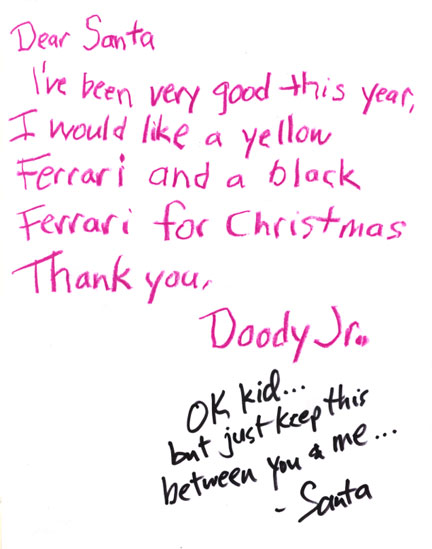 Dear Santa
I've been very good this year,
I would like a yellow
Ferrari and a black
Ferrari for Christmas
Thank you,
Doody Jr..
OK kid...
but just keep this
between you & me...
- Santa